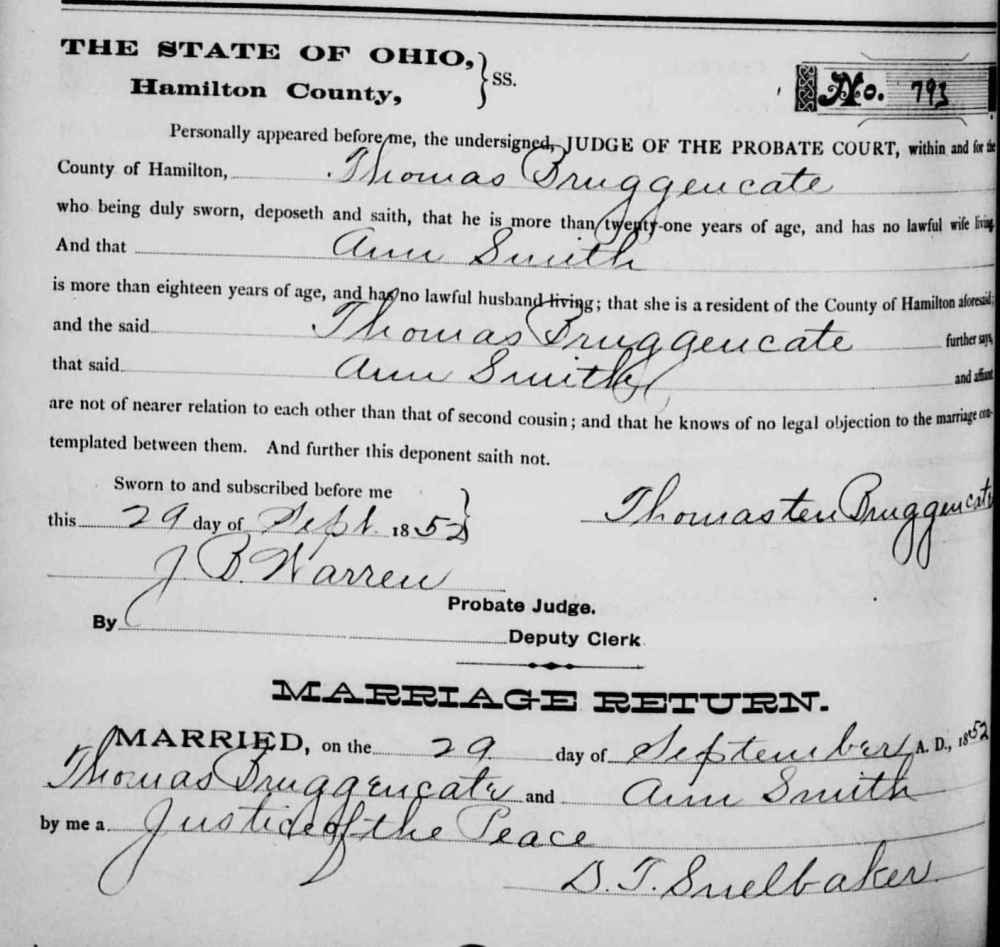 THE STATE OF OHIO,
Hamilton County, } SS.
No. 793
Personally appeared before me, the undersigned, JUDGE OF THE PROBATE COURT, within and for the
County of Hamilton, Thomas Bruggencate
who being duly sworn, deposeth and saith, that he is more than twenty-one years of age, and has no lawful wife living.
And that Ann Smith
is more than eighteen years of age, and has no lawful husband living; that she is a resident of the County of Hamilton aforesaid;
and the said Thomas Bruggencate further says,
that said Ann Smith and affiant
are not of nearer relation to each other than that of second cousin; and that he knows of no legal objection to the marriage con-
templated between them. And further this deponent saith not.
Sworn to and subscribed before me }
this 29 day of Sept. 1852 Thomas ten Bruggencate
J. B. Warren
Probate Judge.
By Deputy Clerk
MARRIAGE RETURN.
MARRIED, on the 29 day of September A. D., 1852
Thomas Bruggencate and Ann Smith
by me a Justice of the Peace
D. T. Snelbaker